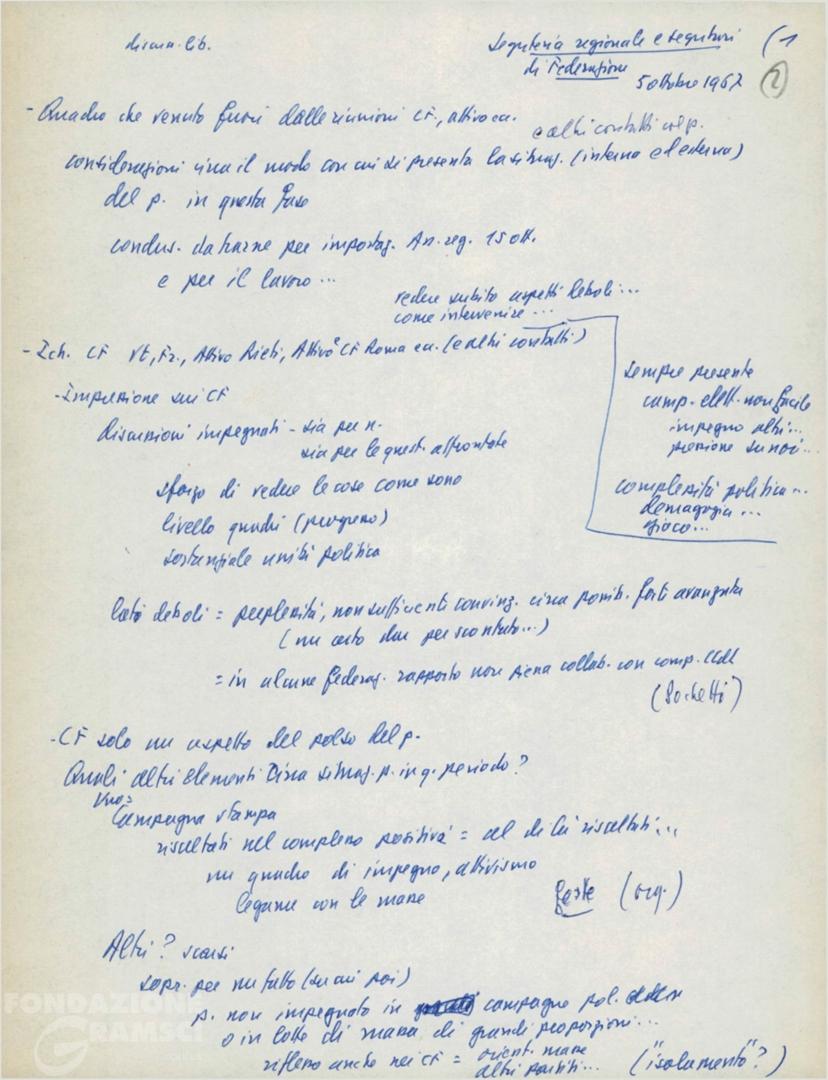 discus. lib.
Segreteria regionale e segretari
di Federazione
5 ottobre 1967
(1
2
- Quadro che venuto fuori dalle riunioni CF, attivo ecc.
e altri contatti col p.
considerazioni circa il modo con cui si presenta la situaz. (interna ed esterna)
del p. in questa fase
conclus. da trarne per impostaz. An. reg. 15 ott.
e per il lavoro ...
vedere subito aspetti deboli ...
come intervenire ...
- CF Vt, Fr., Attivo Rieti, Attivo e CF Roma ecc. (e altri contatti)
sempre presente
camp. elett. non facile
impegno altri ...
pressione su noi ...
complessità politica ...
demagogia ...
gioco ...
- Impressione sui CF
discussioni impegnati - sia per n.
sia per le quest. affrontate
sforzo di vedere le cose come sono
livello quadri (progresso)
sostanziale unità politica
lati deboli = perplessità, non sufficienti convinz. circa possib. forti avanzata
(un certo dar per scontato ...)
= in alcune federaz. rapporto non piena collab. con comp.
- CF solo un aspetto del polso del p.
Quali altri elementi circa situaz. p. in q. periodo?
Uno =
Campagna stampa
risultati nel complesso positivi = al di là risultati ...
un quadro di impegno, attivismo
legame con le masse
feste (org.)
Altri? scarsi
sopr. per un fatto (su cui poi)
p. non impegnato in campagna pol.
o in lotte di massa di grandi proporzioni ...
riflesso anche nei CF = orient. masse
altri partiti ... ("isolamento"?)
FONDAZIONE
GRAMSCI